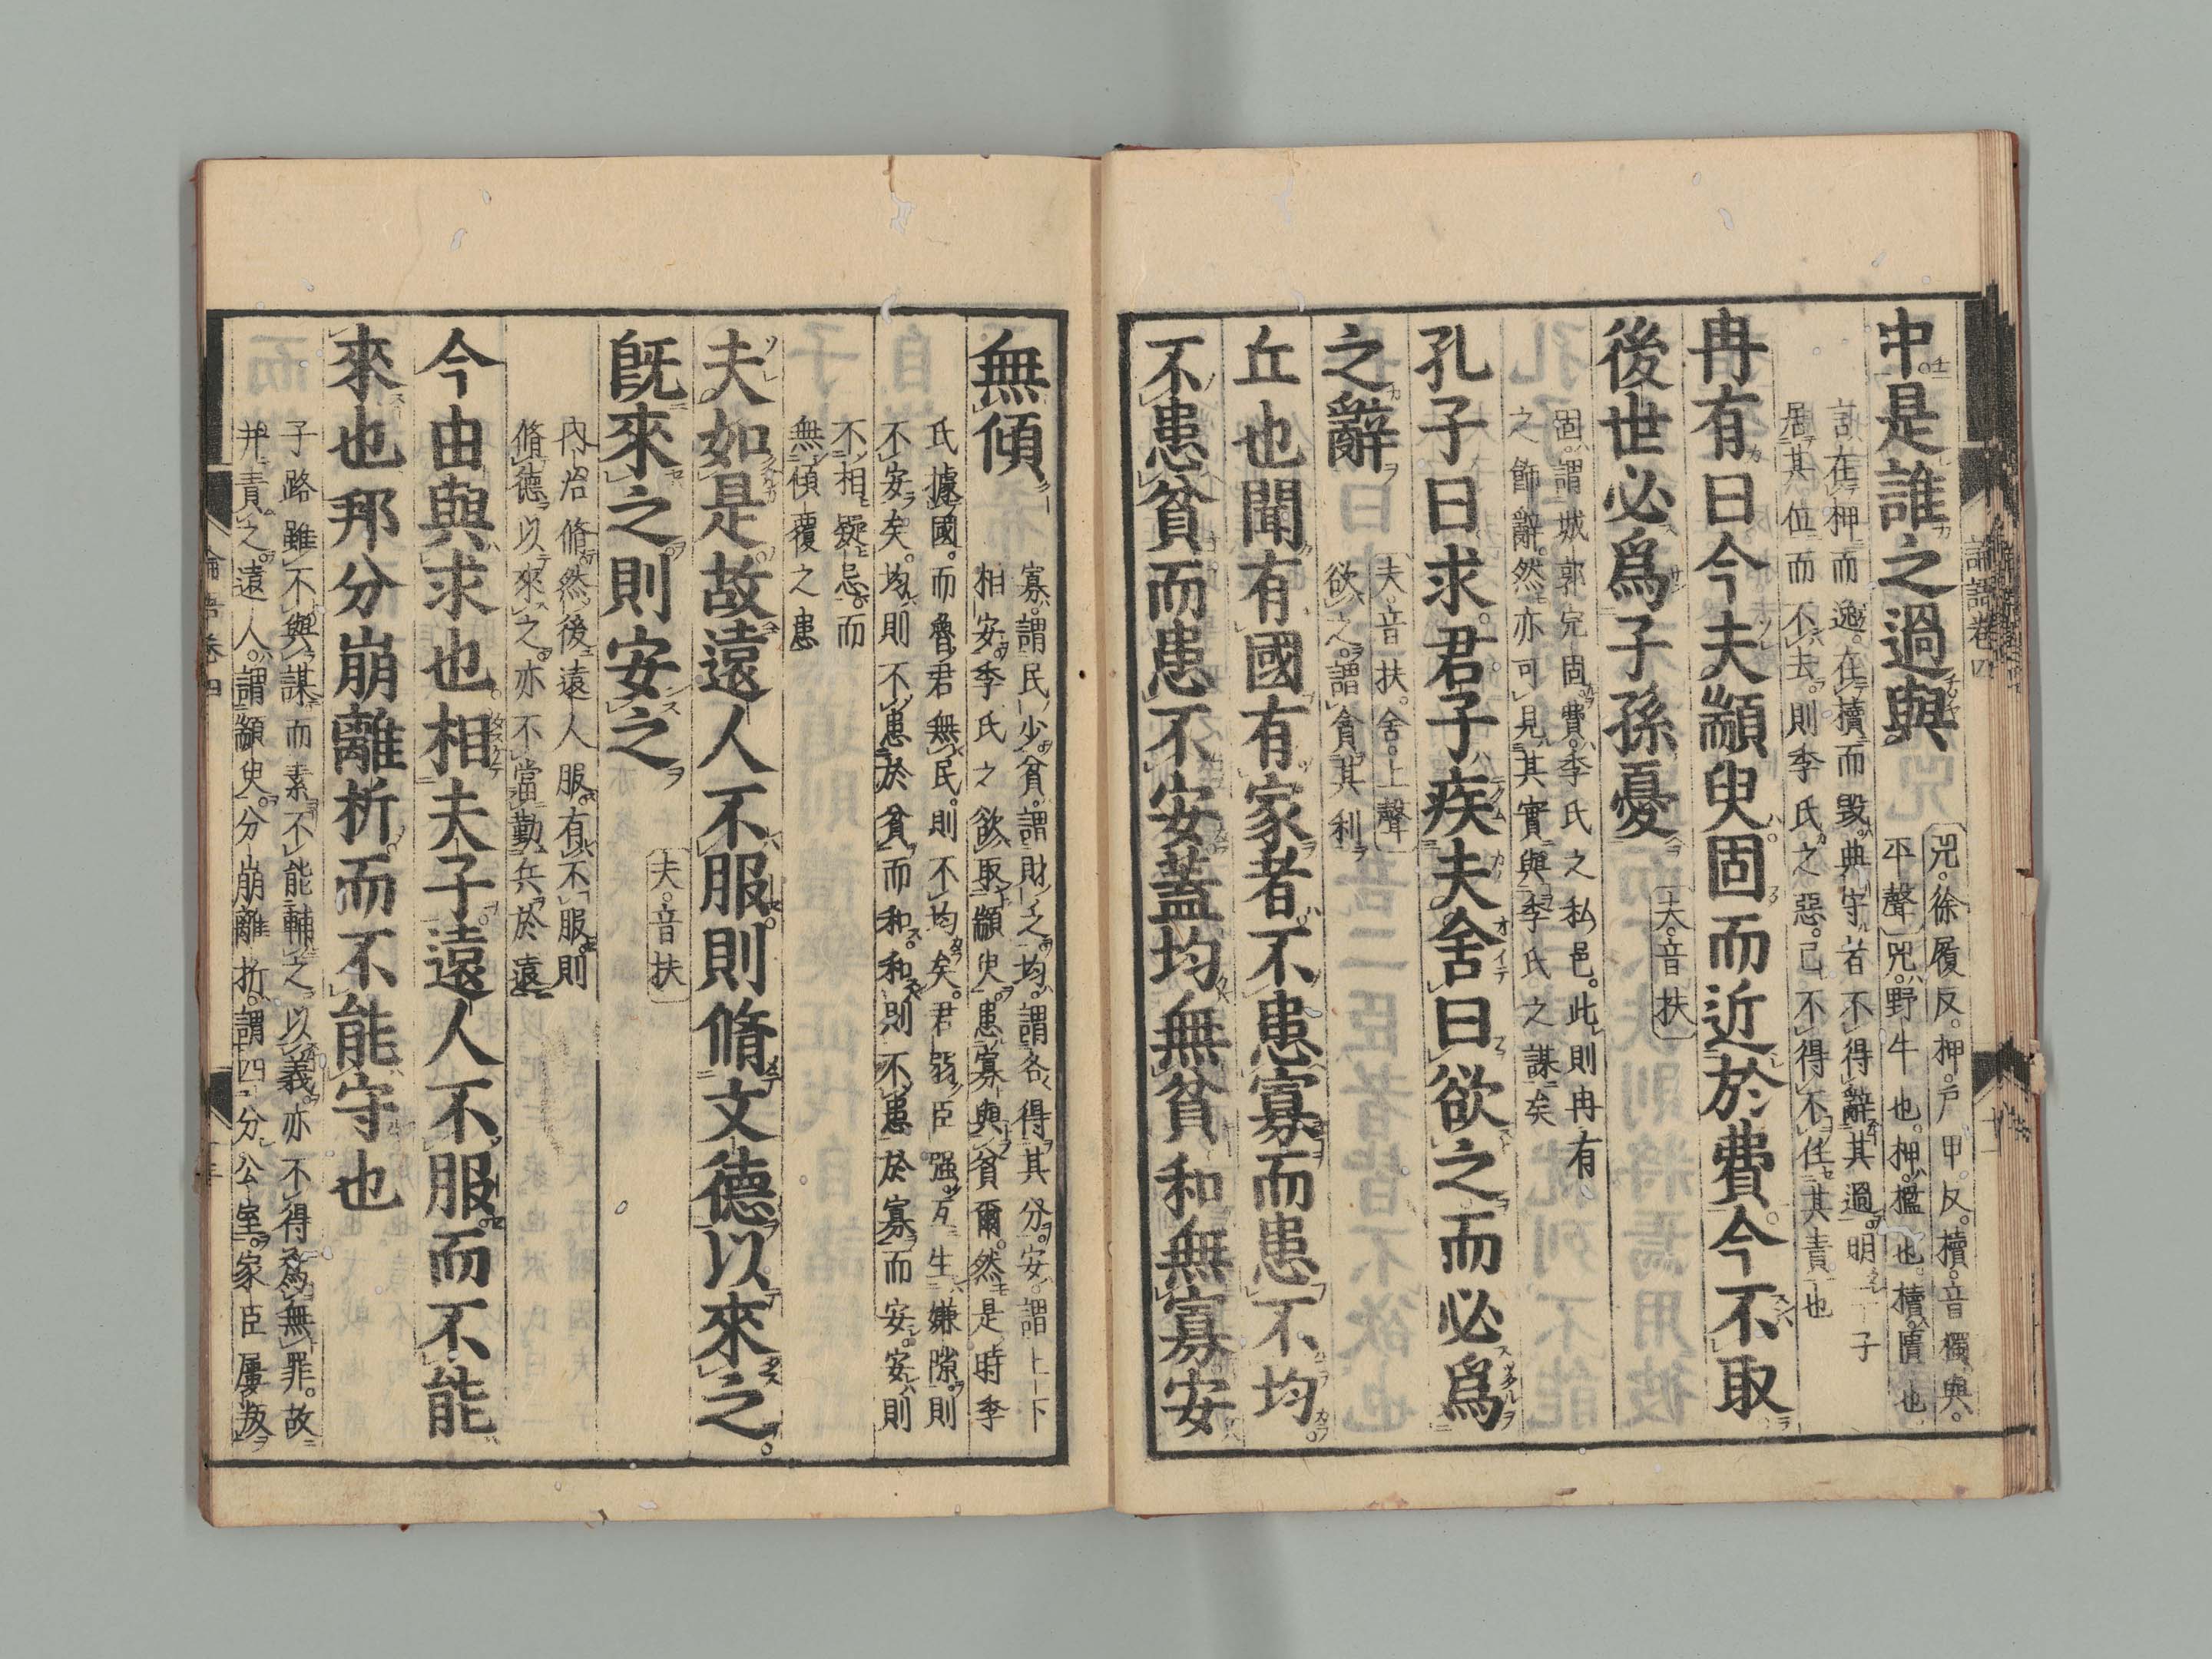 論語卷四
中是誰之過與
兕。徐履反。柙。戶甲。反。櫝。音獨。與。
平聲 兕。野牛也。柙。檻也。櫝。匱也
言在柙而逸。在櫝而毀。典守者不得辭其過。明二子
居其位而不去。則季氏之惡。己不得不任其責也
冉有曰今夫顓臾固而近於費今不取
後世必爲子孫憂
夫。音扶
固。謂城郭完固。費。季氏之私邑。此則冉有。
之飾辭。然亦可見其實與季氏之謀矣
孔子曰求君子疾夫舍曰欲之而必爲
之辭
夫。音扶。舍。上聲
欲之。謂貪其利
丘也聞有國有家者不患寡而患不均
不患貧而患不安蓋均無貧和無寡安
無傾
寡。謂民少。貧。謂財乏。均。謂各得其分。安。謂上下
相安。季氏之欲取顓臾。患寡與貧爾。然是時季
氏據國。而魯君無民。則不均矣。君弱臣强。互生嫌隙。則
不安矣。均則不患於貧而和。和則不患於寡而安。安則
不相疑忌。而
無傾覆之患
夫如是故遠人不服則脩文德以來之
既來之則安之
夫。音扶
內治脩。然後遠人服。有不服。則
脩德以來之。亦不當勤兵於遠
今由與求也相夫子遠人不服而不能
來也邦分崩離析而不能守也
子路雖不與謀。而素不能輔之以義。亦不得爲無罪。故
幷責之。遠人。謂顓臾。分崩離析。謂四分公室。家臣屢叛